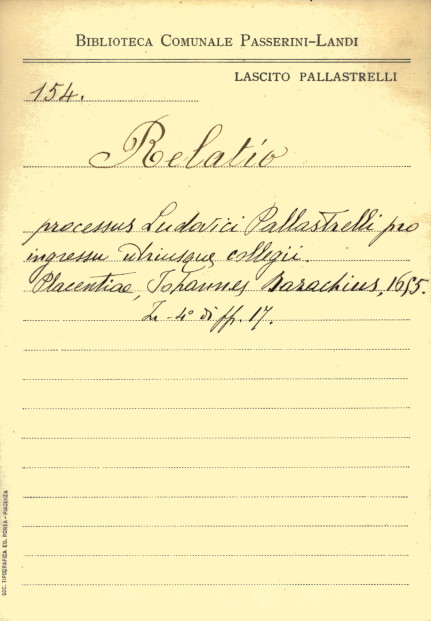 BIBLIOTECA COMUNALE PASSERINI-LANDI
LASCITO PALLASTRELLI
154.
Relatio
processus Ludovici Pallastrelli pro
ingressu utriusque collegii.
Placentiae, Johannes Bazachius, 1655.
In-4° di ff. 17.
SOC. TIPOGRAFICA ED. PORTA - PIACENZA